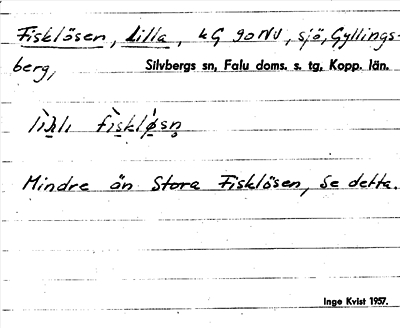 Fisklösen, Lilla, 4G 90NV, sjö, Gyllings-
berg, Silvbergs sn, Falu doms. s. tg, Kopp. län.
Mindre än Stora Fisklösen, Se detta.
Inge Kvist 1957.